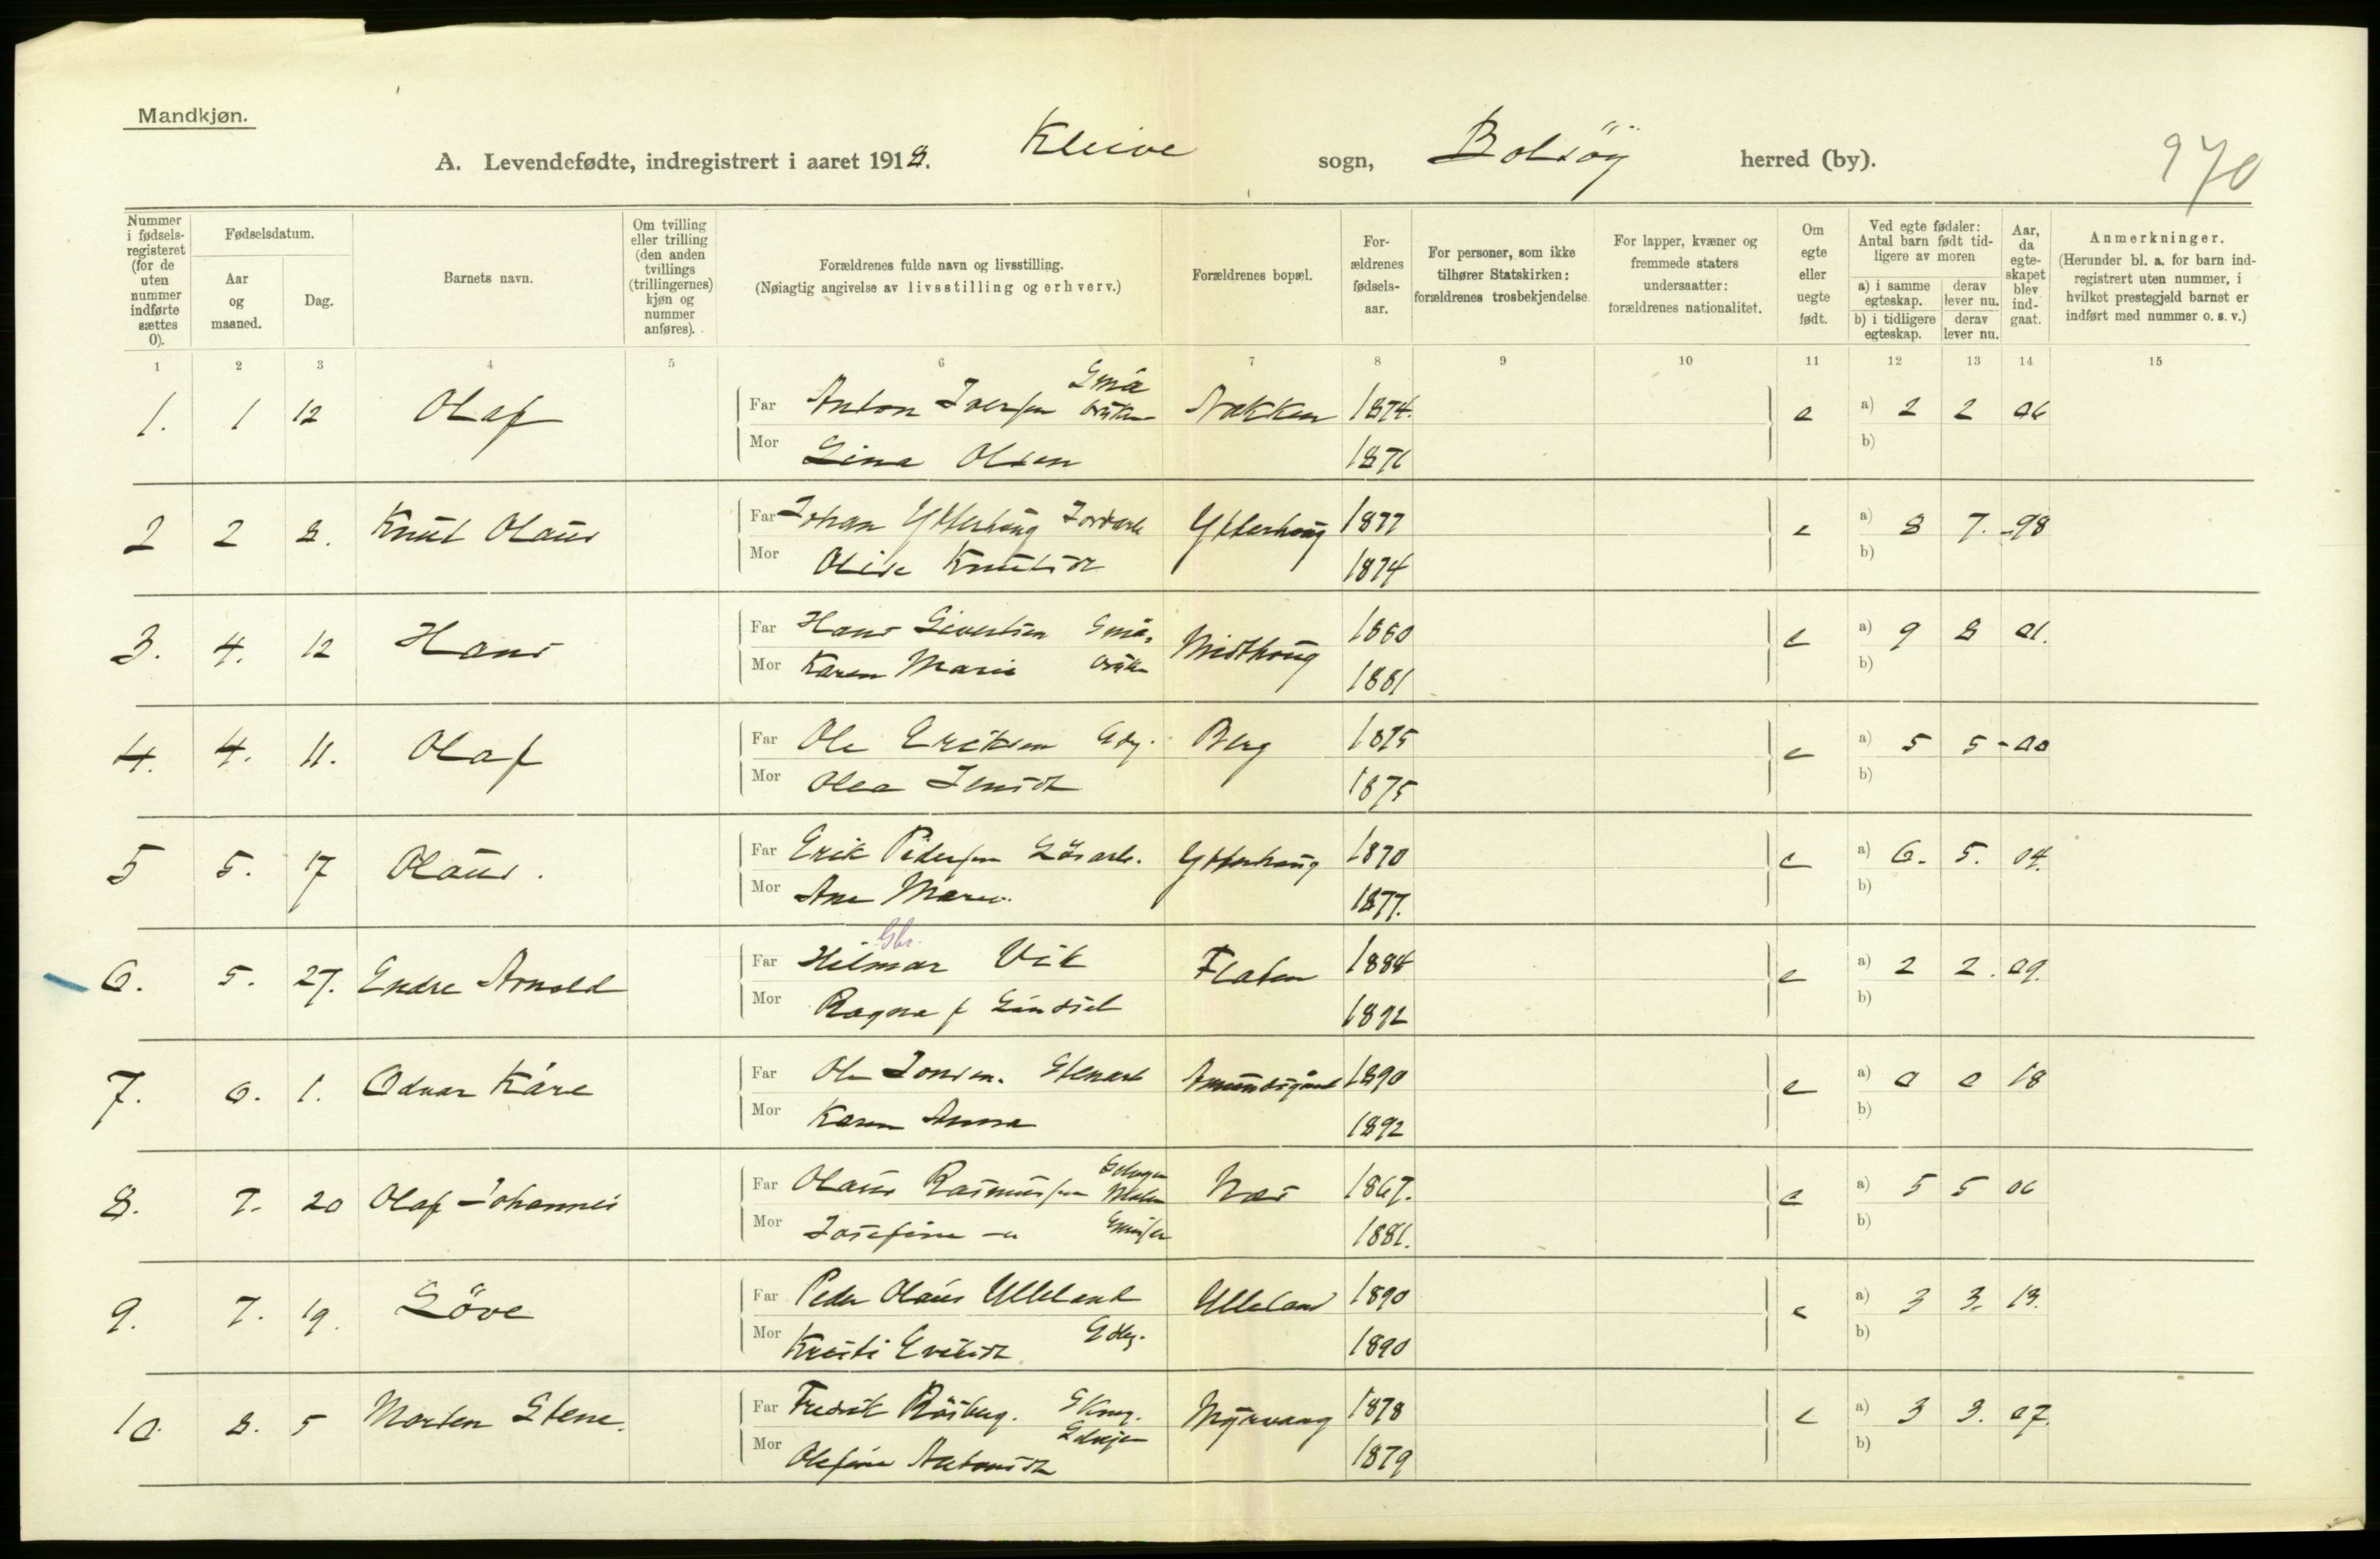 Mandkjøn.
A. Levendefødte, indregistrert i aaret 1918. Kleive sogn, Bolsöy herred (by).
970
Nummer i fødsels-registeret (for de uten nummer indførte sættes 0).
Fødselsdatum.
Aar og maaned.
Dag.
Barnets navn.
Om tvilling eller trilling (den anden tvillings (trillingernes) kjøn og nummer anføres).
Forældrenes fulde navn og livsstilling.
(Nøiagtig angivelse av livsstilling og erhverv.)
Forældrenes bopæl.
For-ældrenes fødsels-aar.
For personer, som ikke tilhører Statskirken: forældrenes trosbekjendelse
For lapper, kvæner og fremmede staters undersaatter: forældrenes nationalitet.
Om egte eller uegte født.
Ved egte fødsler: Antal barn født tid-ligere av moren
a) i samme egteskap.
derav lever nu.
b) i tidligere egteskap.
derav lever nu.
Aar, da egte-skapet blev ind-gaat.
Anmerkninger.
(Herunder bl. a. for barn ind-registrert uten nummer, i hvilket prestegjeld barnet er indført med nummer o. s. v.)
1 2 3 4 5 6 7 8 9 10 11 12 13 14 15
Små
1. 1 12 Olaf Far Anton Iversen bruker Nakken 1874. e a) 2 2 06
Mor Lina Olsen 1876 b)
2 2 8. Knut Olaus Far Johan Ytterhaug Jordarb Ytterhaug 1877 e a) 8 7. -98
Mor Olise Knutsdt 1874 b)
3. 4. 12 Hans Far Hans Sivertsen Små- Midthaug 1880 e a) 9 8 01.
Mor Karen Marie bruker 1881 b)
4. 4. 11. Olaf Far Ole Eriksen Gdbr. Berg 1875 e a) 5 5 -00
Mor Olea Jensdt 1875 b)
5 5. 17 Olaus. Far Erik Pedersen Lösarb. Ytterhaug 1870 e a) 6. 5. 04.
Mor Ane Maren. 1877. b)
Gbr.
6. 5. 27. Endre Arnold Far Hilmar Vik Flaten 1884 e a) 2 2. 09.
Mor Ragna f 1892 b)
7. 6. 1. Odvar Kåre Far Ole Jonsen. Stenarb Amundsgård 1890 e a) 0 0 18
Mor Karen Anna 1892 b)
8. 7. 20 Olaf Johannes Far Olaus Rasmussen Maler Næs 1867. e a) 5 5 06
Mor Josefine 1881. b)
9. 7. 19. Löve Far Peder Olaus Ulleland Ulleland 1890 e a) 3 3. 13.
Mor Kristi Eriksdt Gdbr. 1890 b)
10. 8. 5 Morten Stene. Far Fredrik Rösberg. Skomg. Myrvang 1878 e a) 3 3. 07.
Mor Olefine Antonsdt 1879 b)